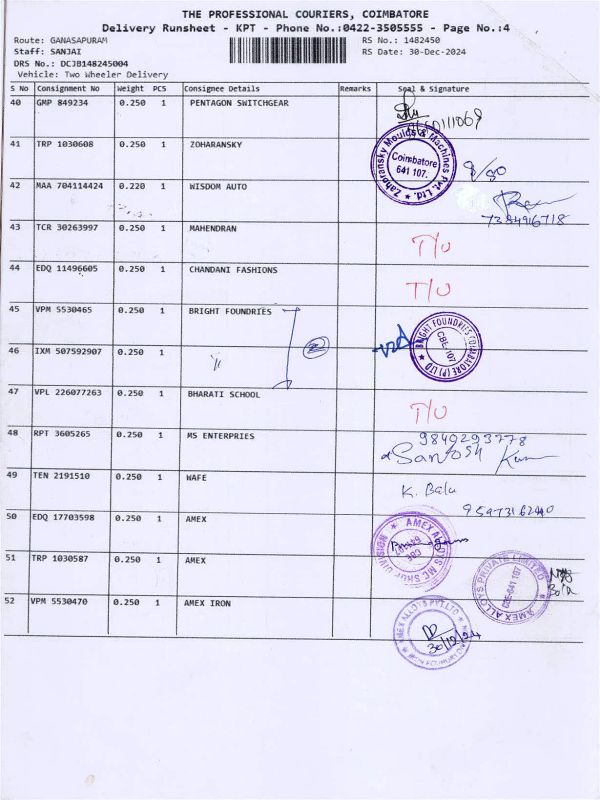 THE PROFESSIONAL COURIERS, COIMBATORE
Delivery Runsheet - KPT - Phone No.:0422-3505555 - Page No.:4
Route: GANASAPURAM RS No.: 1482450
Staff: SANJAI RS Date: 30-Dec-2024
DRS No.: DCJB148245004
Vehicle: Two Wheeler Delivery
S No Consignment No Weight PCS Consignee Details Remarks Seal & Signature
40 GMP 849234 0.250 1 PENTAGON SWITCHGEAR
41 TRP 1030608 0.250 1 ZOHARANSKY
Zahoransky Moulds & Machines Pvt. Ltd. Coimbatore 641 107.
42 MAA 704114424 0.220 1 WISDOM AUTO
7384916718
43 TCR 30263997 0.250 1 MAHENDRAN T/U
44 EDQ 11496605 0.250 1 CHANDANI FASHIONS T/U
45 VPM 5530465 0.250 1 BRIGHT FOUNDRIES
BRIGHT FOUNDRIES COIMBATORE (P) LTD CBE-107
46 IXM 507592907 0.250 1 "
47 VPL 226077263 0.250 1 BHARATI SCHOOL T/U
48 RPT 3605265 0.250 1 MS ENTERPRIES
9849293778
Santosh Kum
49 TEN 2191510 0.250 1 WAFE K. Balu
50 EDQ 17703598 0.250 1 AMEX
AMEX ALLOYS MC SHOP DIVISION
51 TRP 1030587 0.250 1 AMEX
AMEX ALLOYS PRIVATE LIMITED CBE-641 107
52 VPM 5530470 0.250 1 AMEX IRON
AMEX ALLOYS PVT LTD
30/12/24